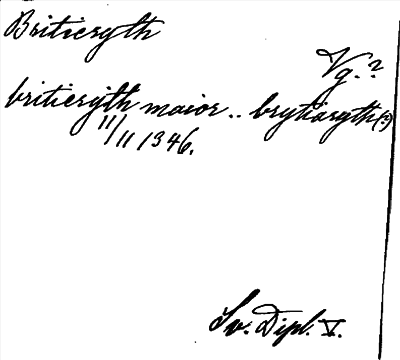 Britieryth
Vg.?
britierijth maior .. brytiaryth(?)
11/11 1346.
Sv. Dipl. V.